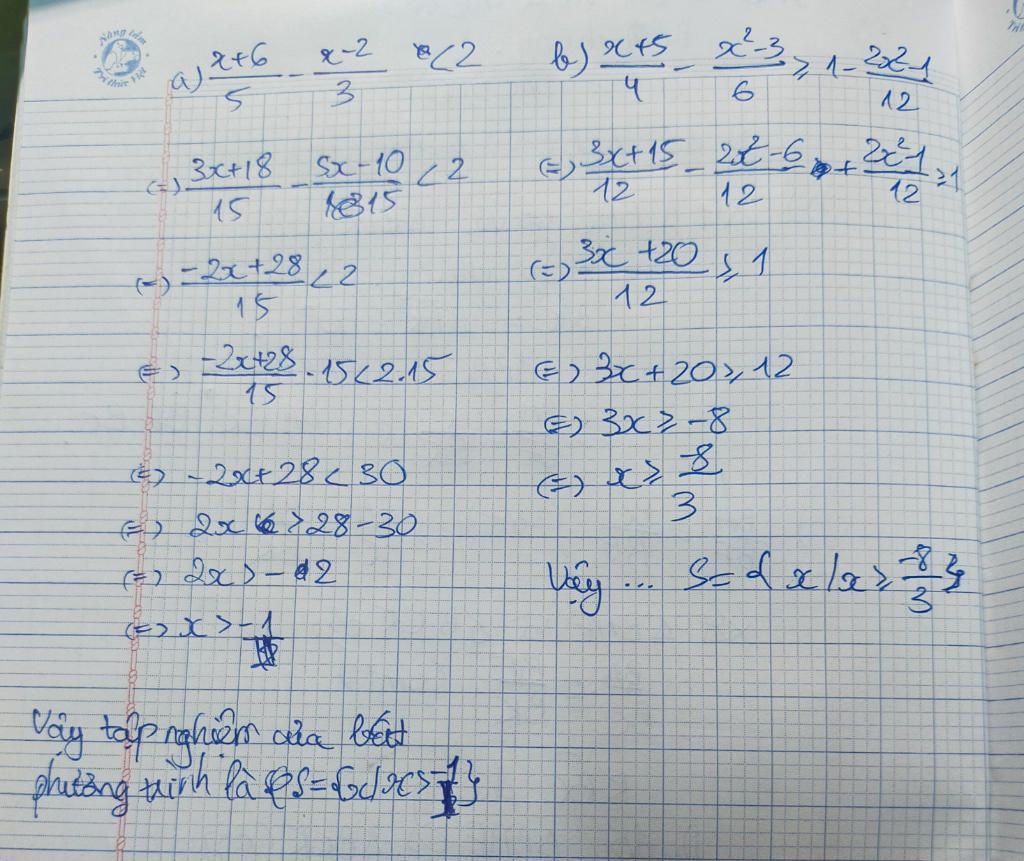 Nâng tầm
Tri thức Việt
a) (x+6)/5 - (x-2)/3 < 2
(=) (3x+18)/15 - (5x-10)/15 < 2
(=) (-2x+28)/15 < 2
(=) (-2x+28)/15 . 15 < 2.15
(=) -2x+28 < 30
(=) 2x > 28-30
(=) 2x > -2
(=) x > -1
Vậy tập nghiệm của bất
phương trình là S={x/x>-1}
b) (x+5)/4 - (x²-3)/6 ≥ 1 - (2x²-1)/12
(=) (3x+15)/12 - (2x²-6)/12 + (2x²-1)/12 ≥ 1
(=) (3x+20)/12 ≥ 1
(=) 3x+20 ≥ 12
(=) 3x ≥ -8
(=) x ≥ -8/3
Vậy ... S={x/x ≥ -8/3}